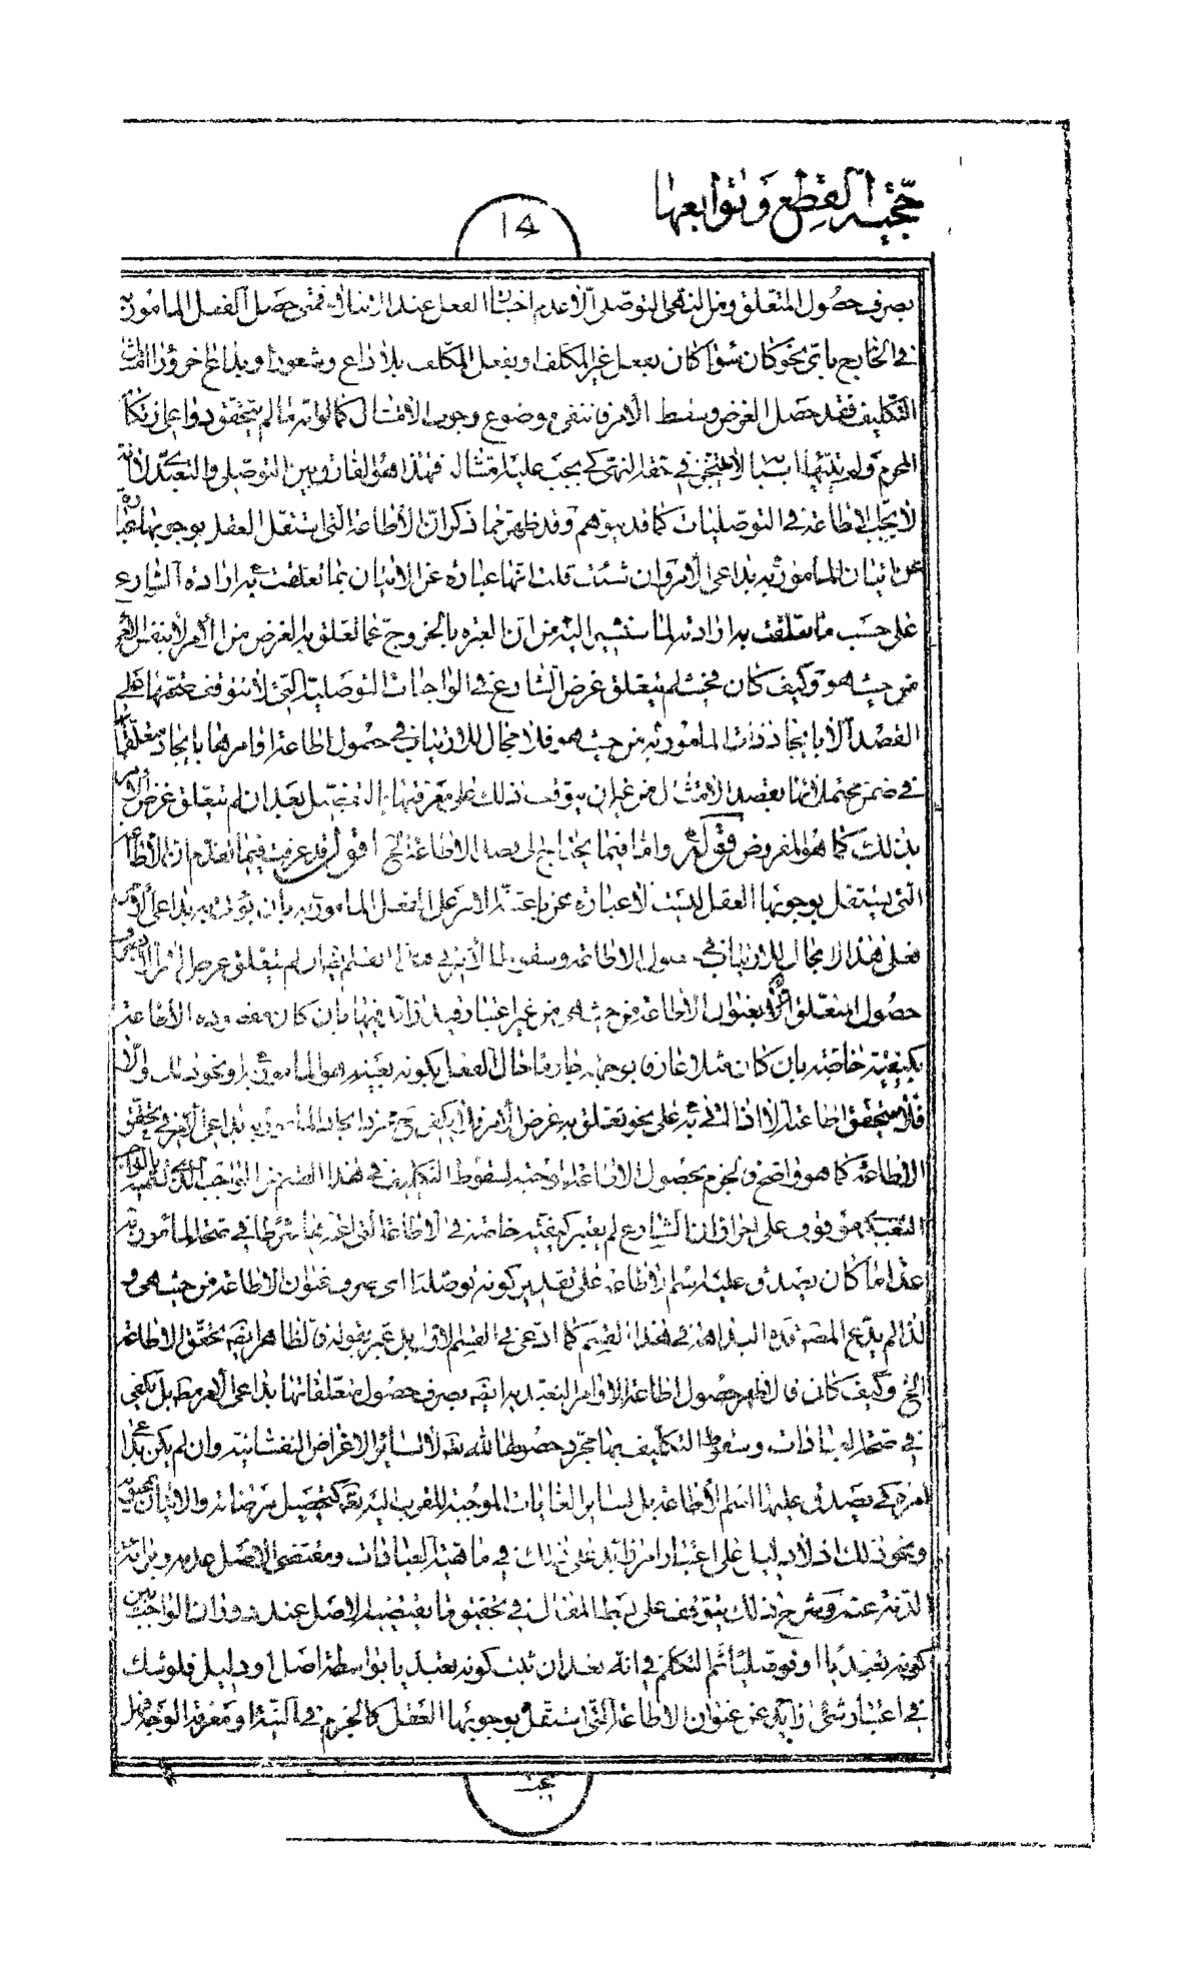 حجية القطع وتوابعها
14
بصرف حصول المتعلق ومن النهي التوصلي الا عدم اختيار الفعل عند فمتى حصل الفعل المامور به
في الخارج باي نحو كان سواء كان بفعل غير المكلف او بفعل المكلف بلا داع وشعور او بداع اخر
التكليف فقد حصل الغرض وسقط الامر فانتفى موضوع وجوب الامتثال كما لو انه ما لم يتحقق دواعي ارتكاب
المحرم ولم يتهيا اسبابه لا يتنجز في حقه النهي كي يجب عليه امتثاله فهذا هو الفارق بين التوصلي والتعبدي لا انه
لا يجب الاطاعة في التوصليات كما قد يتوهم وقد ظهر مما ذكر ان الاطاعة التي استقل العقل بوجوبها عبارة
عن اتيان المامور به بداعي الامر وان شئت قلت انها عبارة عن الاتيان بما تعلقت به ارادة الشارع
على حسب ما تعلقت به ارادته لما سنشير اليه من ان العبرة بالخروج عما تعلق به الغرض من الامر لا بنفس الامر
من حيث هو وكيف كان فحيث لم يتعلق غرض الشارع في الواجبات التوصلية التي لا يتوقف صحتها على
القصد الا بايجاد ذات المامور به من حيث هو فلا مجال للارتياب في حصول اطاعة اوامرها بايجاد متعلقها
في ضمن محتملاتها بقصد الامتثال من غير ان يتوقف ذلك على معرفتها بالتفصيل بعد ان لم يتعلق غرض الامر
بذلك كما هو المفروض قوله واما فيما يحتاج الى قصد الاطاعة الخ اقول قد عرفت فيما تقدم ان الاطاعة
التي يستقل بوجوبها العقل ليست الا عبارة عن باعثية الامر على الفعل المامور به بان يؤتى به بداعي الامر
فعلى هذا لا مجال للارتياب في حصول الاطاعة وسقوط الامر في لم يتعلق غرض الامر
حصول المتعلق بعنوان الاطاعة من حيث هو من غير اعتبار قيد زائد فيها بان كان مقصوده الاطاعة
بكيفية خاصة بان كان مثلا عارفا بوجهه جازما حال الفعل بكونه بعينه هو المامور به ونحو ذلك والا
فلا يتحقق اطاعته الا اذا اتي به على نحو تعلق به غرض الامر فلا يكفي ح مجرد ايجاد المامور به بداعي الامر في تحقق
الاطاعة كما هو واضح فالجزم بحصول الاطاعة الموجبة لسقوط التكليف في هذا القسم من الواجب
موقوف على احراز ان الشارع لم يعتبر كيفية خاصة في الاطاعة التي شرطا في صحة المامور به
عدا ما كان يصدق عليه اسم الاطاعة على تقدير كونه توصليا اى صرف عنوان الاطاعة من حيث هي و
لذا لم يدع المصنف قده البداهة في هذا القسم كما ادعى في القسم الاول بل عبر بقوله فالظاهر ايضا تحقق الاطاعة
الخ وكيف كان فالاظهر حصول اطاعة الاوامر التعبدية ايضا بصرف حصول متعلقاتها بداعي الامر مط بل يكفي
في صحة العبادات وسقوط التكليف بها مجرد حصولها لله تعالى لا لسائر الاغراض النفسانية وان لم يكن بداعي
امره كي يصدق عليها اسم الاطاعة بل لسائر الغايات الموجبة للقرب اليه تعالى كتحصيل مرضاته
ونحو ذلك اذ لا دليل على اعتبار امر زائد على ذلك في ماهية العبادات ومقتضى الاصل عدمه وبرائة
الذمة عنه وشرح ذلك يتوقف على بسط المقال في تحقيق ما يقتضيه الاصل عند دوران الواجب بين
كونه تعبديا او توصليا ثم التكلم في انه بعد ان ثبت كونه تعبديا بواسطة اصل او دليل فلو شك
في اعتبار شئ زائد عن عنوان الاطاعة التي استقل بوجوبها العقل كالجزم في النية او معرفة الوجه